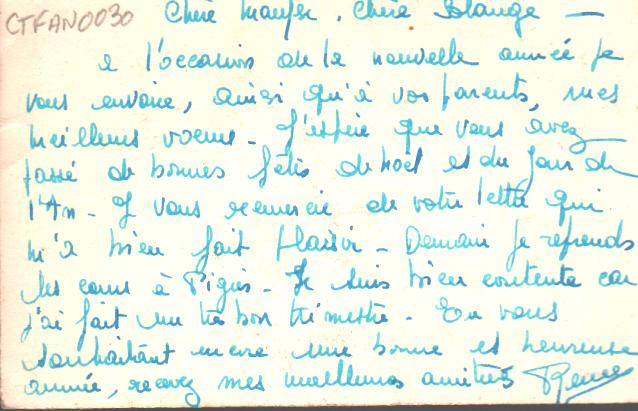 CTFAN0030
Chère Chère Solange —
à l'occasion de la nouvelle année je
vous envoie, ainsi qu'à vos parents, mes
meilleurs voeux - J'espère que vous avez
passé de bonnes fêtes de noël et du jour de
l'An - Je vous remercie de votre lettre qui
m'a bien fait plaisir - Demain je reprends
les cours à - Je suis bien contente car
j'ai fait un très bon trimestre - En vous
souhaitant encore une bonne et heureuse
année, recevez mes meilleures amitiés